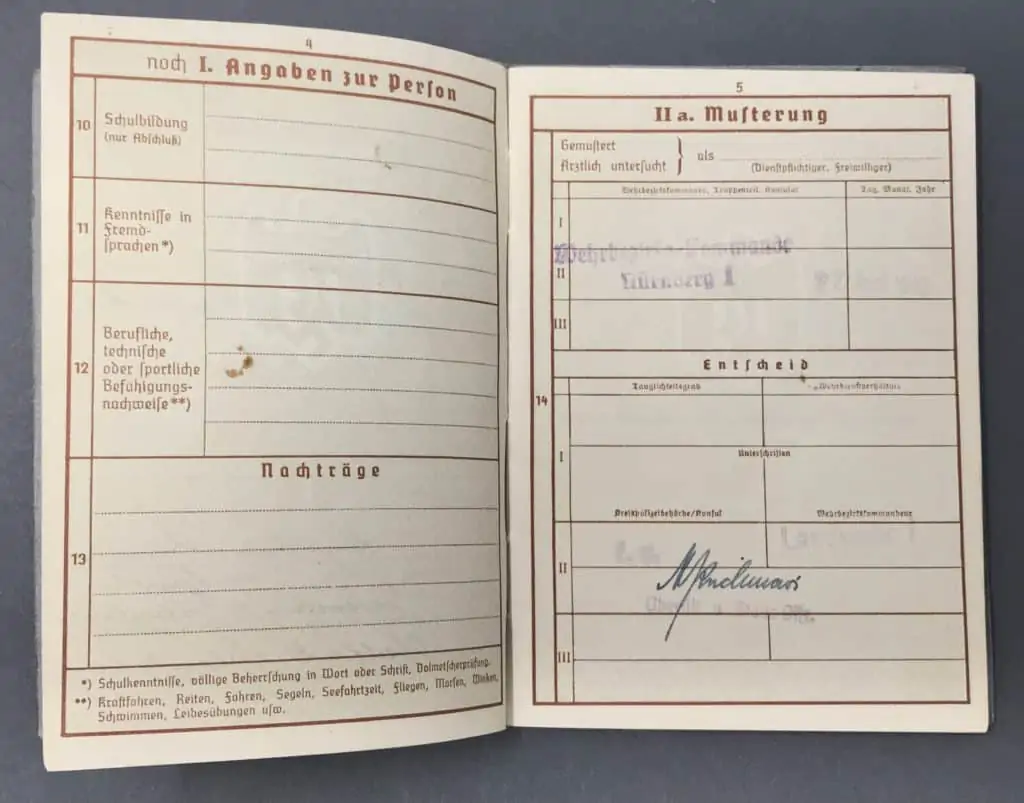 4
noch I. Angaben zur Person
10
Schulbildung
(nur Abschluß)
11
Kenntnisse in
Fremd-
sprachen*)
12
Berufliche,
technische
oder sportliche
Befähigungs-
nachweise**)
Nachträge
13
*) Schulkenntnisse, völlige Beherrschung in Wort oder Schrift, Dolmetscherprüfung.
**) Kraftfahren, Reiten, Fahren, Segeln, Seefahrtzeit, Fliegen, Morsen, Winken,
Schwimmen, Leibesübungen usw.
5
II a. Musterung
Gemustert
Ärztlich untersucht } als
(Dienstpflichtiger, Freiwilliger)
Wehrbezirkskommando, Truppenteil, Konsulat
Tag, Monat, Jahr
I
Wehrbezirks-Kommando
II
Nürnberg I
III
Entscheid
Tauglichkeitsgrad
Wehrdienstverhältnis
14
I
Unterschriften
Kreispolizeibehörde/Konsul
Wehrbezirkskommandeur
II
Landwehr I
III